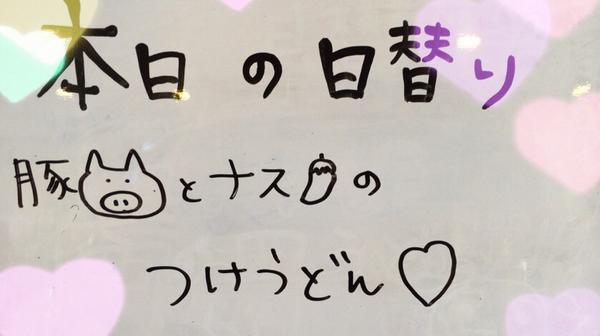 本日の日替り
豚とナスの
つけうどん♡